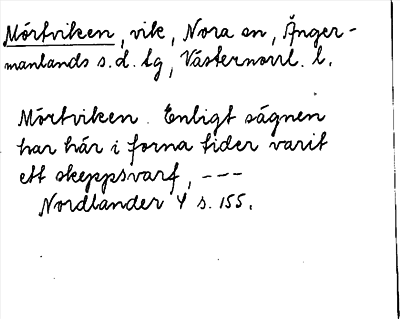 Mörtviken, vik, Nora sn, Ånger-
manlands s.d. lg, Västernorrl. l.
Mörtviken. Enligt sägnen
har här i forna tider varit
ett skeppsvarf, ---
Nordlander 4 s. 155.